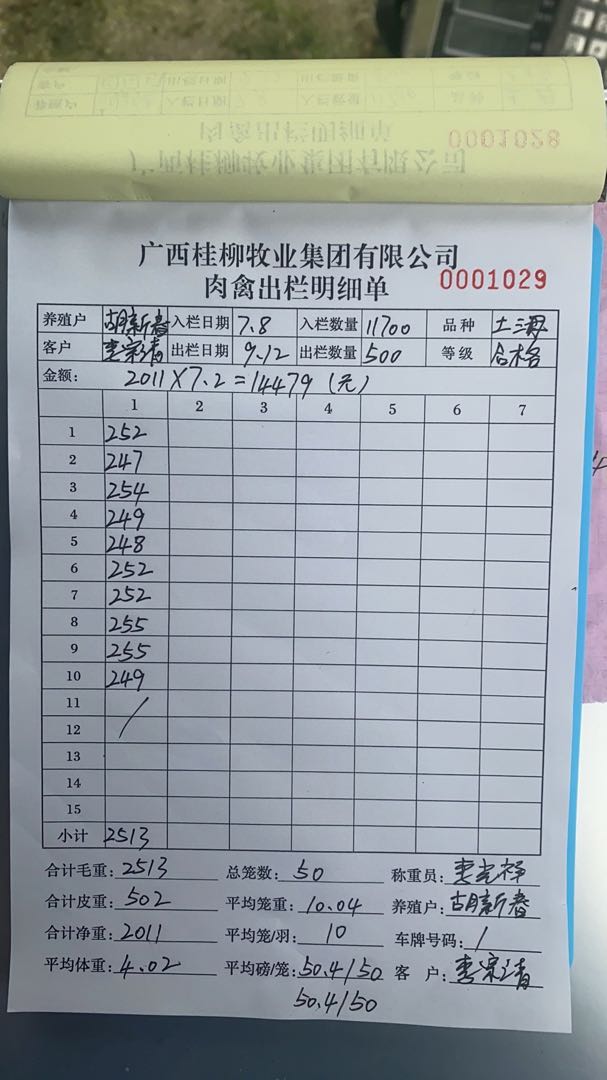 0001028
广西桂柳牧业集团有限公司
肉禽出栏明细单
0001029
养殖户 胡新春 入栏日期 7.8 入栏数量 11700 品种 土二海
客户 李宗清 出栏日期 9.12 出栏数量 500 等级 合格
金额: 2011×7.2=14479(元)
1 2 3 4 5 6 7
1 252
2 247
3 254
4 249
5 248
6 252
7 252
8 255
9 255
10 249
11 /
12
13
14
15
小计 2513
合计毛重: 2513 总笼数: 50 称重员:
合计皮重: 502 平均笼重: 10.04 养殖户: 胡新春
合计净重: 2011 平均笼/羽: 10 车牌号码: /
平均体重: 4.02 平均磅/笼: 50.4/50 客 户: 李宗清
50.4/50